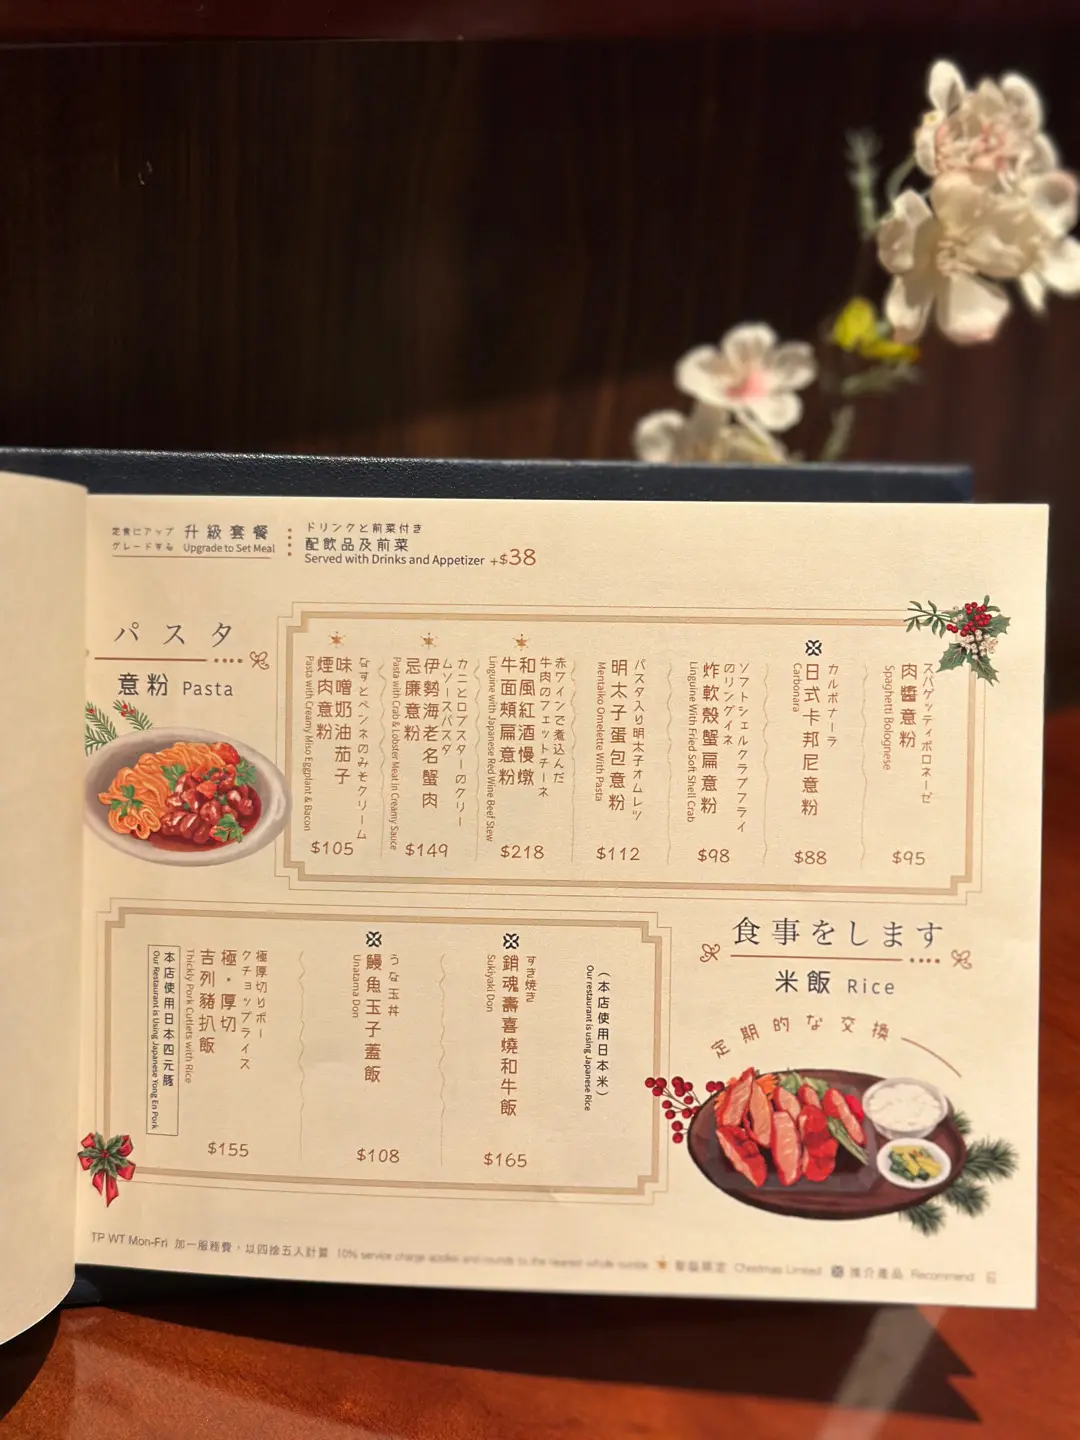 定食にアップ
グレードする
升級套餐
Upgrade to Set Meal
ドリンクと前菜付き
配飲品及前菜
Served with Drinks and Appetizer +$38
パスタ
意粉 Pasta
スパゲッティボロネーゼ
肉醬意粉
Spaghetti Bolognese
$95
カルボナーラ
日式卡邦尼意粉
Carbonara
$88
ソフトシェルクラブフライ
のリングイネ
炸軟殼蟹扁意粉
Linguine With Fried Soft Shell Crab
$98
パスタ入り明太子オムレツ
明太子蛋包意粉
Mentaiko Omelette With Pasta
$112
赤ワインで煮込んだ
牛肉のフェットチーネ
和風紅酒慢燉
牛面頰扁意粉
Linguine with Japanese Red Wine Beef Stew
$218
カニとロブスターのクリー
ムソースパスタ
伊勢海老名蟹肉
忌廉意粉
Pasta with Crab & Lobster Meat In Creamy Sauce
$149
なすとペンネのみそクリーム
味噌奶油茄子
煙肉意粉
Pasta with Creamy Miso Eggplant & Bacon
$105
食事をします
米飯 Rice
定期的な交換
(本店使用日本米)
Our restaurant is using Japanese Rice
すき焼き
銷魂壽喜燒和牛飯
Sukiyaki Don
$165
うな玉丼
鰻魚玉子蓋飯
Unatama Don
$108
極厚切りポー
クチョップライス
極・厚切
吉列豬扒飯
Thickly Pork Cutlets with Rice
$155
本店使用日本四元豚
Our Restaurant is Using Japanese Yong En Pork
TP WT Mon-Fri 加一服務費，以四捨五入計算 10% service charge applies and rounds to the nearest whole number 聖誕限定 Christmas Limited 推介產品 Recommend